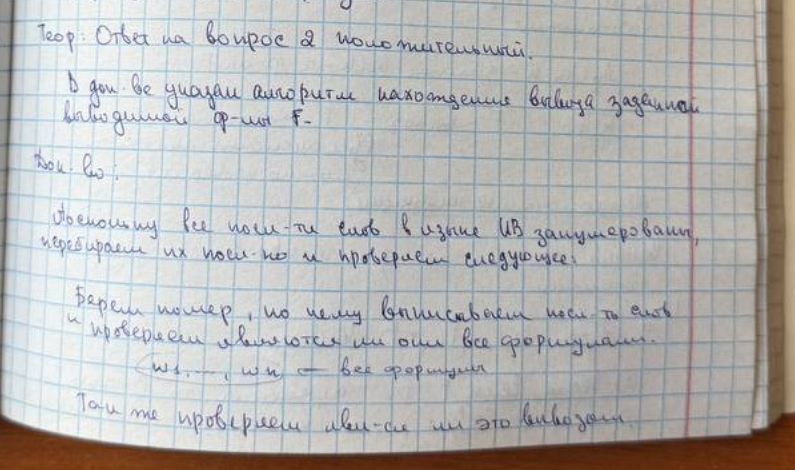 Теор: Ответ на вопрос 2 положительный.
В док-ве укажем алгоритм нахождения вывода заданной
выводимой ф-лы F.
Док-во:
Поскольку все посл-ти слов в языке ИВ занумерованы,
перебираем их посл-но и проверяем следующее:
Берем номер, по нему выписываем посл-ть слов
и проверяем являются ли они все формулами.
w1, ..., wn — все формулы
Так же проверяем явл-ся ли это выводом.